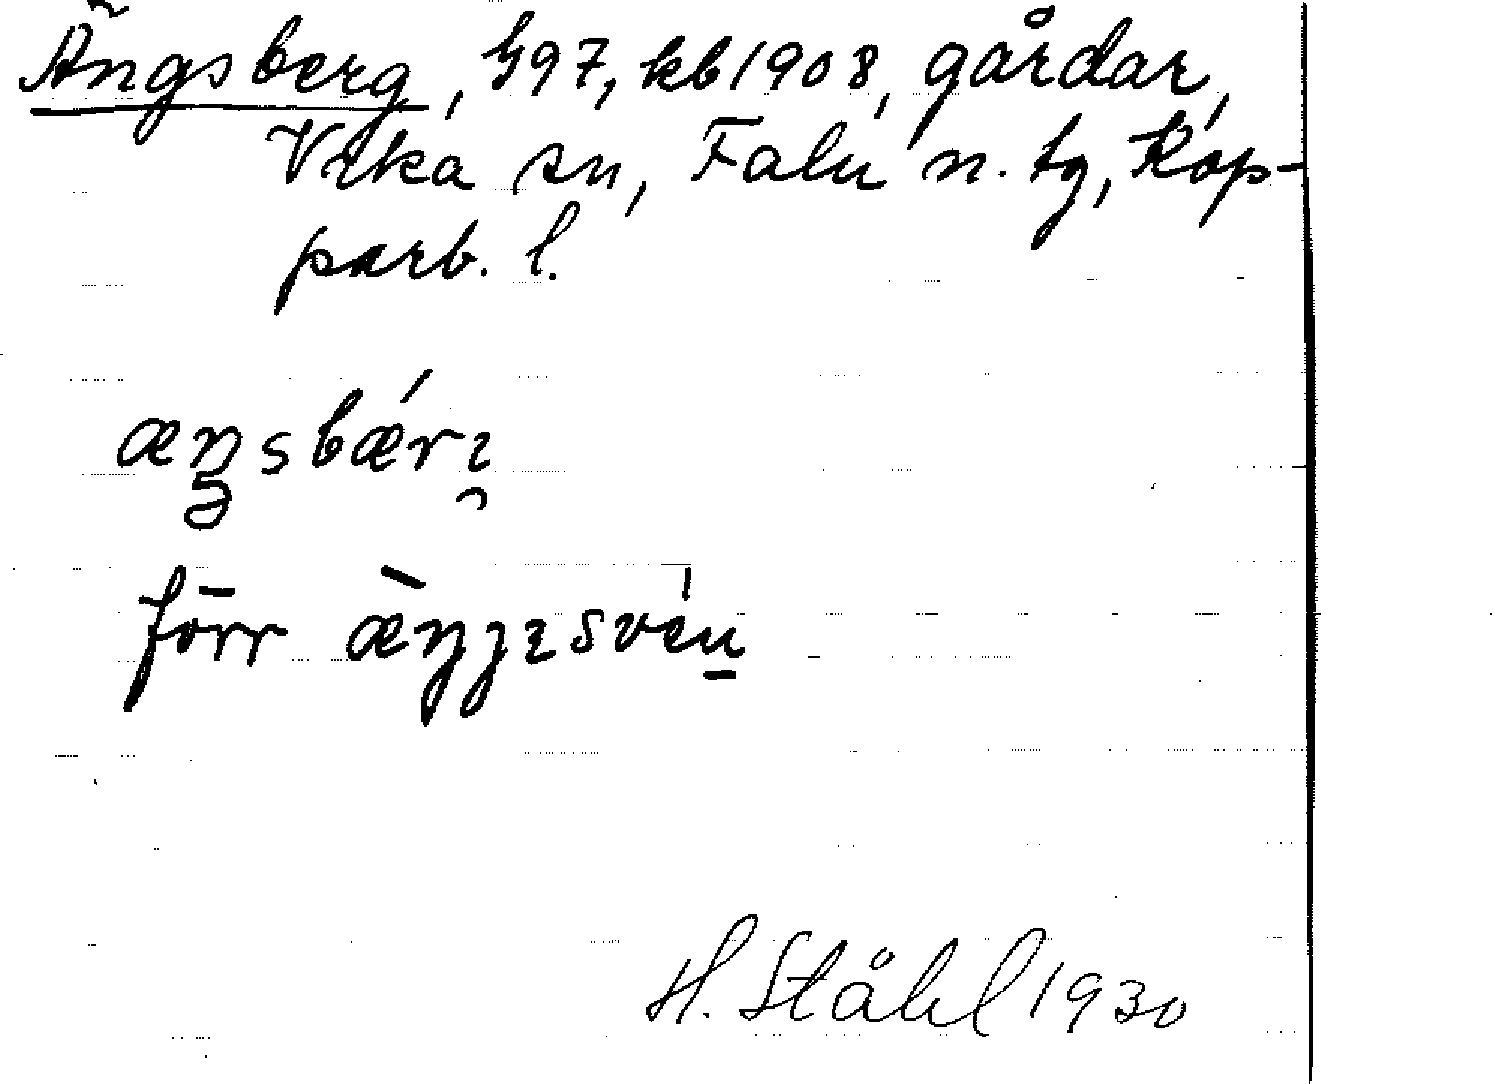 Ängsberg, G97, kb 1908, gårdar,
Vika sn, Falu n. tg, Kop-
parb. l.
æŋsbǽrɪ
förr æ̀ŋɟɪsvéu
H. Ståhl 1930